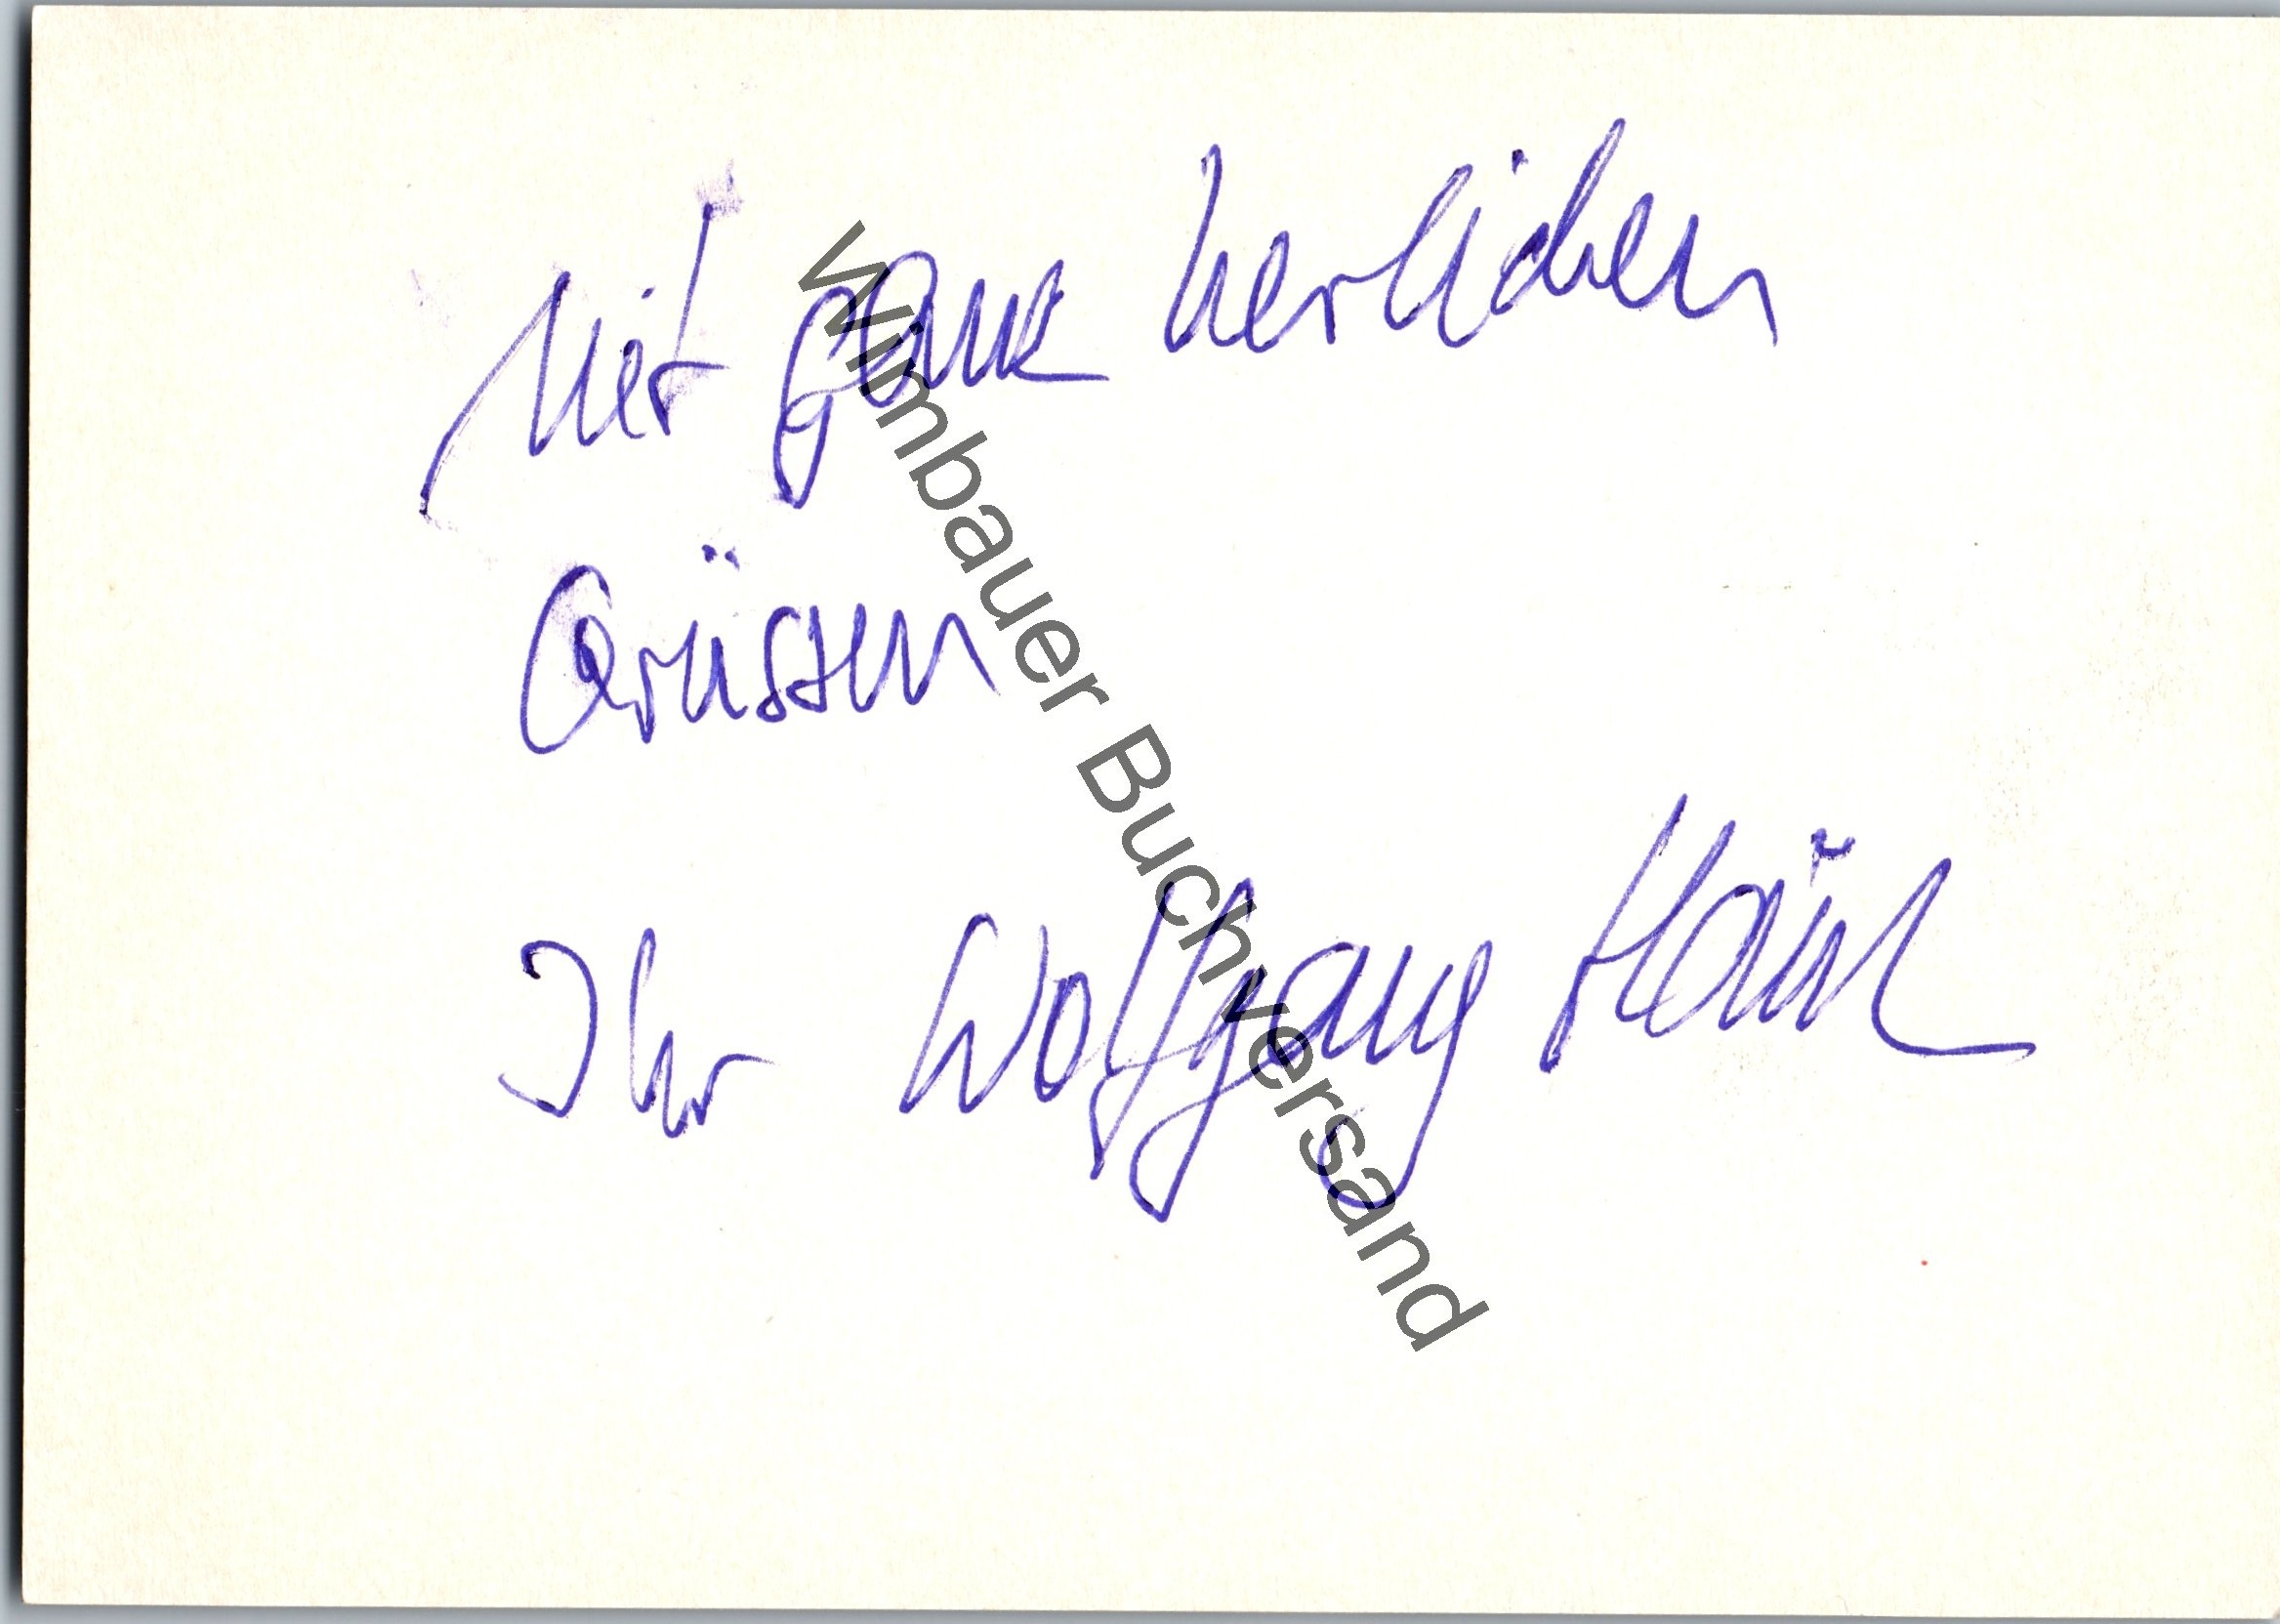 Mit ganz herlichen
Grüssen
Ihr Wolfgang
Wimbauer Buchversand